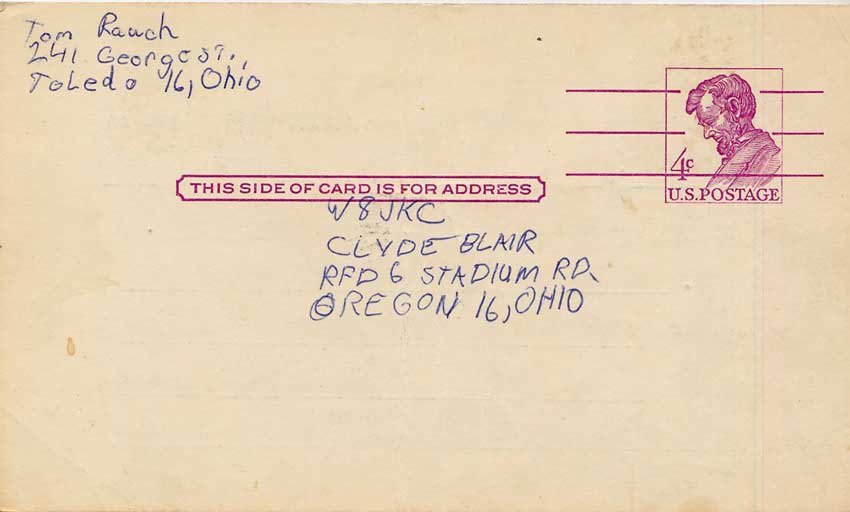 Tom Rauch
241 George St.,
Toledo 16, Ohio
4c
U.S. POSTAGE
THIS SIDE OF CARD IS FOR ADDRESS
W8JKC
CLYDE BLAIR
RFD 6 STADIUM RD.
OREGON 16, OHIO